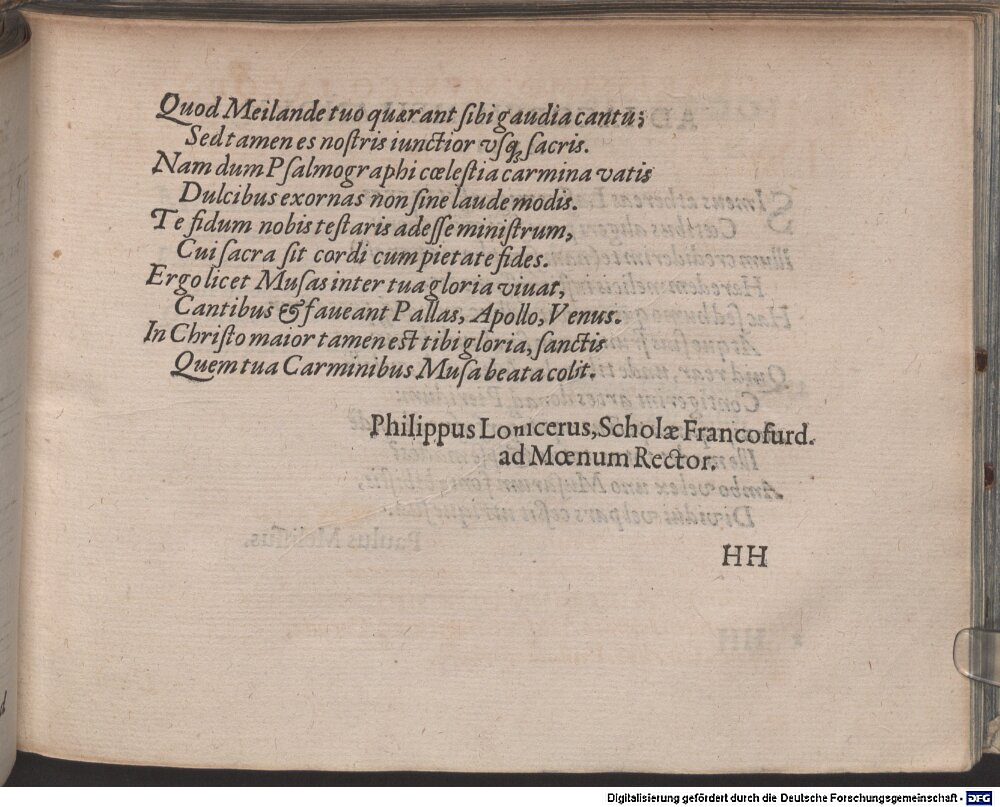 Quod Meilande tuo quærant ſibi gaudia cantu;
Sed tamen es noſtris iunctior vſq; ſacris.
Nam dum Pſalmographi cœleſtia carmina vatis
Dulcibus exornas non ſine laude modis.
Te fidum nobis teſtaris adeſſe miniſtrum,
Cui ſacra ſit cordi cum pietate fides.
Ergo licet Muſas inter tua gloria viuat,
Cantibus & faueant Pallas, Apollo, Venus.
In Chriſto maior tamen eſt tibi gloria, ſanctis
Quem tua Carminibus Muſa beata colit.
Philippus Lonicerus, Scholæ Francofurd.
ad Mœnum Rector.
HH
Digitalisierung gefördert durch die Deutsche Forschungsgemeinschaft - DFG